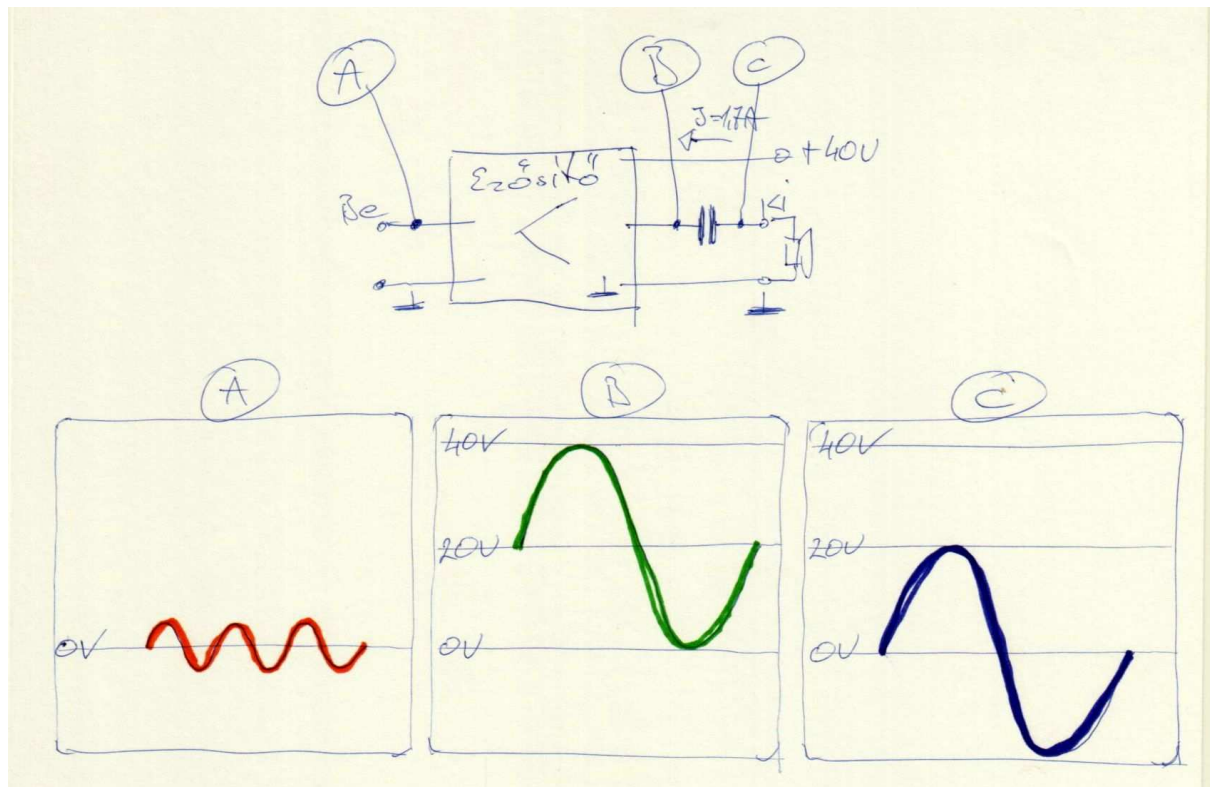 A
B
C
J=1,7A
+40V
Erősítő
Be
Ki
A
B
C
40V
20V
0V
0V
40V
20V
0V